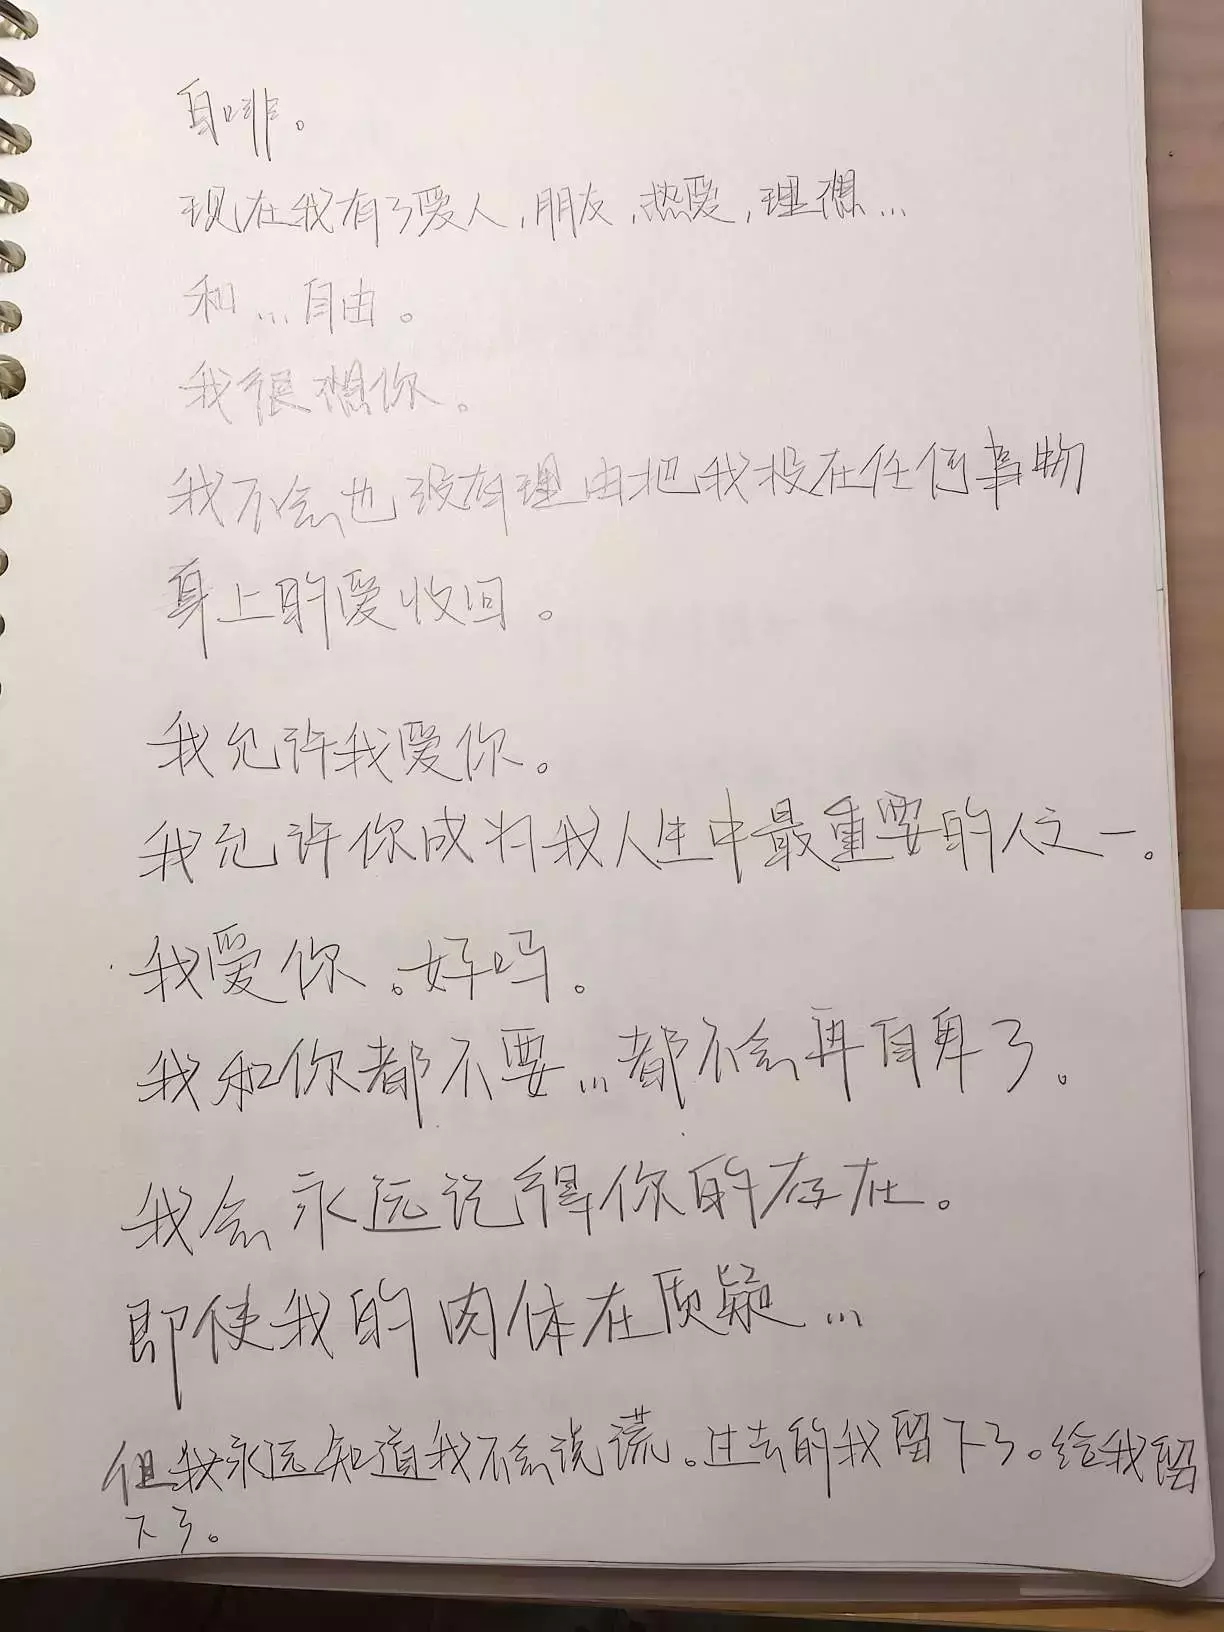 自啡。
现在我有了爱人,朋友,热爱,理想...
和...自由。
我很想你。
我不会也没有理由把我投在任何事物
身上的爱收回。
我允许我爱你。
我允许你成为我人生中最重要的人之一。
我爱你。好吗。
我和你都不要...都不会再自卑了。
我会永远记得你的存在。
即使我的肉体在质疑...
但我永远知道我不会说谎。过去的我留下了。给我留
下了。